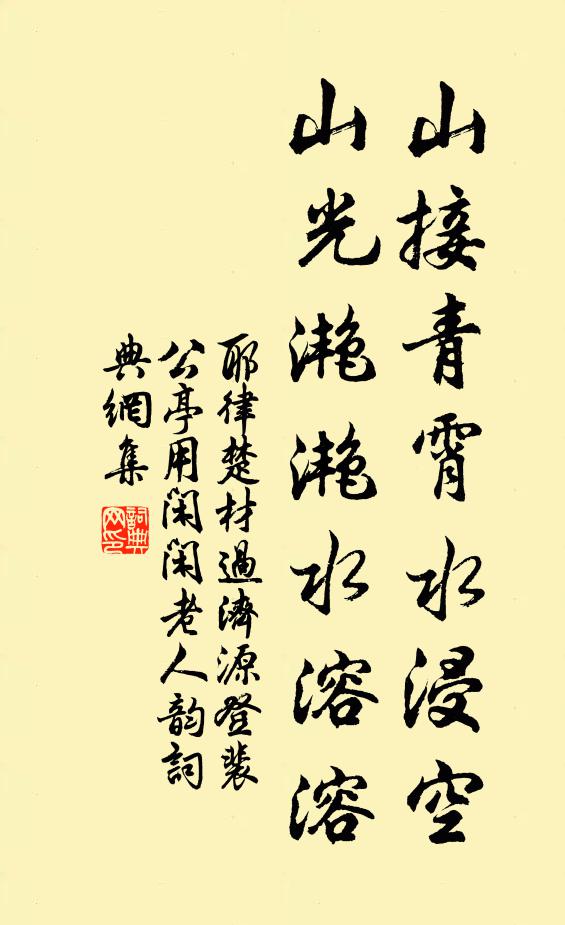 山接青霄水浸空
山光灔灔水溶溶
耶律楚材過濟源登裴
公亭用閑閑老人韵詞
典網集
詞典
网印